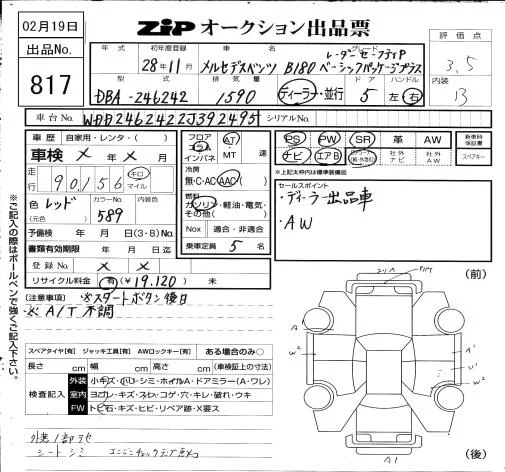 02月19日
ZIP オークション出品票
評価点
3.5
出品No.
817
年式
初年度登録
車名
グレード
28年11月
メルセデスベンツ B180
レーダーセーフティP
ベーシックパッケージプラス
内装
B
型式
排気量
ドア
ハンドル
DBA-246242
1590
ディーラー・並行
5
左・右
車台No.
WDD2462422J392495
シリアルNo.
車歴
自家用・レンタ・( )
車検 × 年 × 月
走行
90,156
キロ
マイル
色(元色)
レッド
カラーNo.
589
内装色
予備検 年 月 日(3・8)No.
書類有効期限 年 月 日迄
登録No. × ×
リサイクル料金 有(¥19,120) 未
フロア
コラム
インパネ
AT
MT 速
冷房
無・C・AC・AAC( )
燃料
ガソリン・軽油・電気・
その他( )
Nox 適合・非適合
乗車定員 5 名
PS PW SR 革 AW
ナビ エアB
社外ナビ
社外AW
新車時保証書
スペアキー
※上記太枠内は標準装備品
セールスポイント
・ディーラー出品車
・AW
(注意事項) ※スタートボタン後日
※A/T不調
スペアタイヤ[有] ジャッキ工具[有] AWロックキー[有] ある場合のみ○
長さ cm 幅 cm 高さ cm (車検証上の寸法)
検査記入
外装 小キズ・小凹・シミ・ホイルA・ドアミラー(A・ワレ)
室内 ヨゴレ・キズ・スレ・コゲ・穴・キレ・破れ・ウキ
FW トビ石・キズ・ヒビ・リペア跡・X要ス
シートシミ エンジンチェックランプ点灯
※ご記入の際はボールペンで強くご記入下さい。
(前)
(後)
A
W²
A1